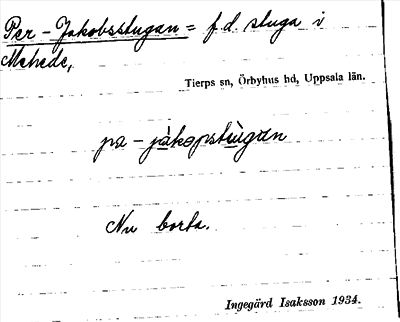 Per-Jakobsstugan = f.d. stuga i
Mehede,
Tierps sn, Örbyhus hd, Uppsala län.
pa-jàkopstùgan
Nu borta.
Ingegärd Isaksson 1934.